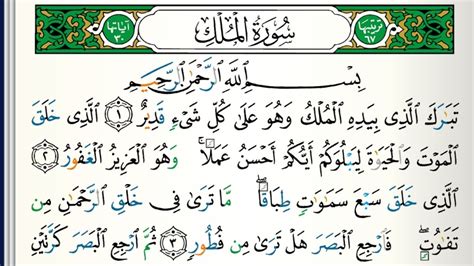 ترتيبها ٦٧ سُورَةُ الْمُلْكِ آياتها ٣٠
بِسْمِ ٱللَّهِ ٱلرَّحْمَٰنِ ٱلرَّحِيمِ
تَبَارَكَ ٱلَّذِى بِيَدِهِ ٱلْمُلْكُ وَهُوَ عَلَىٰ كُلِّ شَىْءٍ قَدِيرٌ ١ ٱلَّذِى خَلَقَ
ٱلْمَوْتَ وَٱلْحَيَوٰةَ لِيَبْلُوَكُمْ أَيُّكُمْ أَحْسَنُ عَمَلًا ۚ وَهُوَ ٱلْعَزِيزُ ٱلْغَفُورُ ٢
ٱلَّذِى خَلَقَ سَبْعَ سَمَٰوَٰتٍ طِبَاقًا ۖ مَّا تَرَىٰ فِى خَلْقِ ٱلرَّحْمَٰنِ مِن
تَفَٰوُتٍ ۖ فَٱرْجِعِ ٱلْبَصَرَ هَلْ تَرَىٰ مِن فُطُورٍ ٣ ثُمَّ ٱرْجِعِ ٱلْبَصَرَ كَرَّتَيْنِ